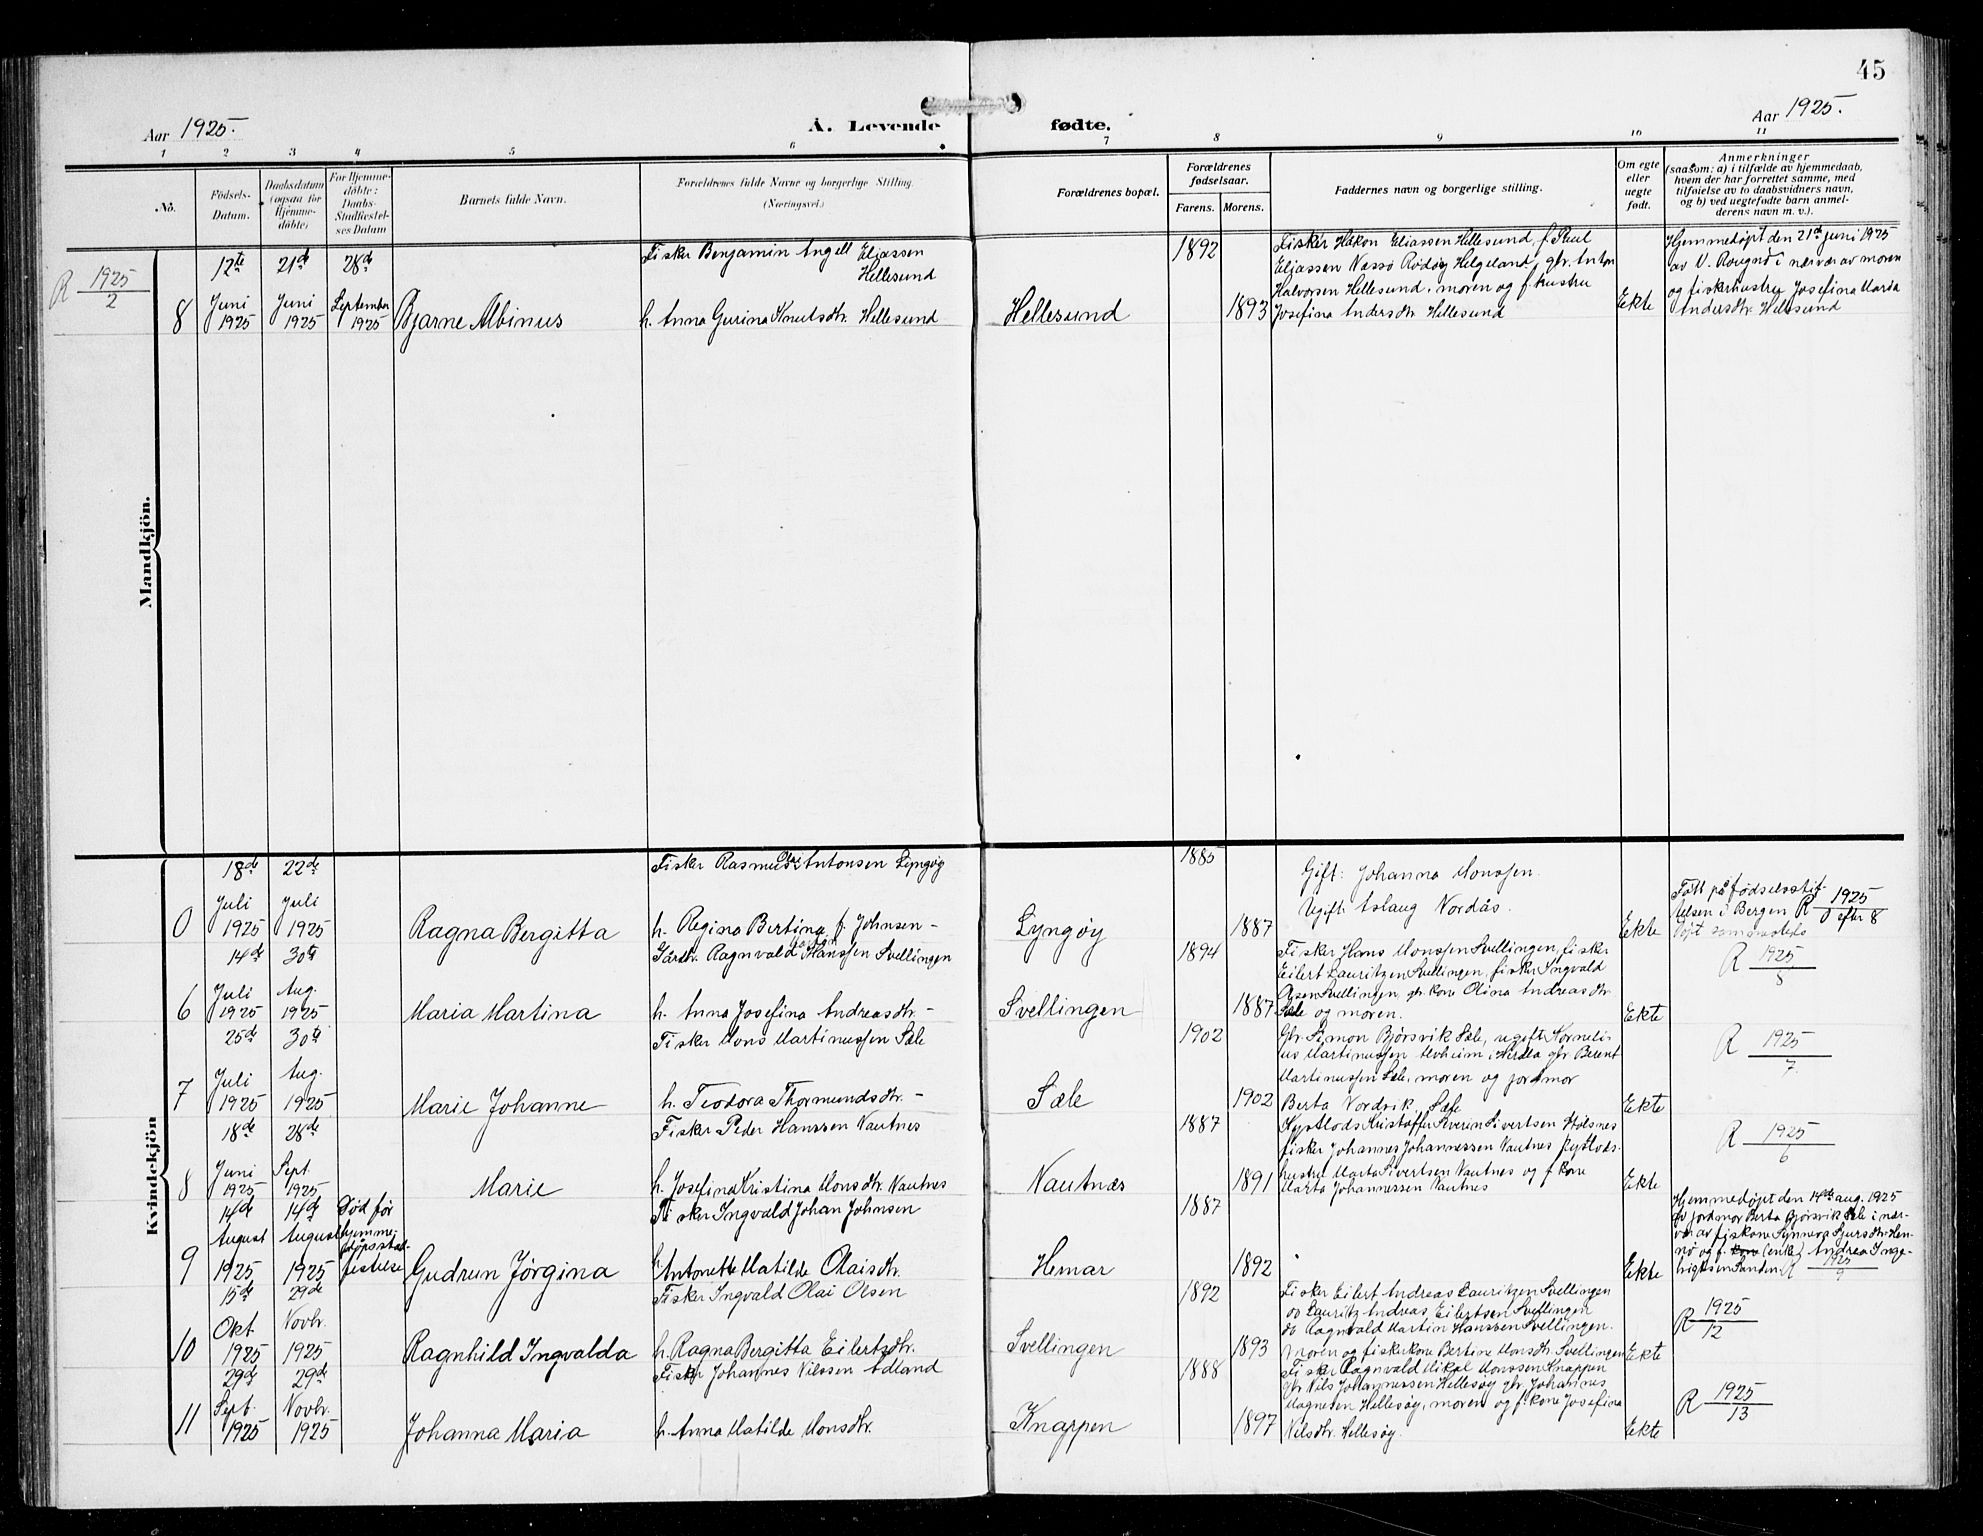 45
Aar 1925.
A. Levende fødte.
Aar 1925.
1 2 3 4 5 6 7 8 9 10 11
No.
Fødsels-
Datum.
Daabsdatum
(ogsaa for
Hjemme-
døbte)
For Hjemme-
døbte:
Daabs-
Stadfæstel-
ses Datum
Barnets fulde Navn.
Forældrenes fulde Navne og borgerlige Stilling.
(Næringsvei.)
Forældrenes bopæl.
Forældrenes
fødselsaar.
Farens. Morens.
Faddernes navn og borgerlige stilling.
Om egte
eller
uegte
født.
Anmerkninger
(saasom: a) i tilfælde av hjemmedaab,
hvem der har forrettet samme, med
tilføielse av to daabsvidners navn,
og b) ved uegtefødte barn anmel-
derens navn m. v.).
Mandkjön.
R 1925
2
8
12te
Juni
1925
21de
Juni
1925
28de
September
1925
Bjarne Albinus
Fisker Benjamin Angell Eliassen
Hellesund
h. Anna Gurina Knutsdtr. Hellesund
Hellesund
1892
1893
Fisker Håkon Eliassen Hellesund, f. Paul
Eliassen Nassø Rødøy Helgeland, gbr. Anton
Halvorsen Hellesund, moren og f. hustru
Josefina Andersdtr. Hellesund
Ekte
Hjemmedøpt den 21de juni 1925
av V. Rougnø i nærvær av moren
og fiskerhustru Josefina Maria
Andersdtr. Hellesund
Kvindekjön
0
18de
Juli
1925
22de
Juli
1925
Ragna Bergitta
Fisker Rasmus Olai Antonsen Lyngøy
h. Regina Bertina f. Johnsen -
Lyngøy
1885
1887
Gift: Johanna Monssen.
Ugift: Aslaug Nordås.
Ekte
Født på fødselsstif-
telsen i Bergen R 1925
0 efter 8
Døpt sammesteds
6
14de
Juli
1925
30te
Aug.
1925
Maria Martina
Gårdbr. Ragnvald Hanssen Svellingen
h. Anna Josefina Andreasdtr. -
Svellingen
1894
1887
Fisker Hans Monssen Svellingen, fisker
Eilert Lauritzen Svellingen, fisker Ingvald
Olsen Svellingen, gbr. kone Olina Andreasdtr.
Sæle og moren.
Ekte
R 1925
8
7
25de
Juli
1925
30te
Aug.
1925
Marie Johanne
Fisker Mons Martinussen Sæle
h. Teodora Thormundsdtr. -
Sæle
1902
1902
Gbr. Simon Bjørsvik Sæle, ugift Korneli-
us Martinussen Alvheim i Herdla gbr Berent
Martinussen Sæle, moren og jordmor
Berta Nordvik Sæle
Ekte
R 1925
7
8
18de
Juni
1925
28de
Sept.
1925
Marie
Fisker Peder Hanssen Nautnes
h. Josefina Kristina Monsdtr. Nautnes
Nautnes
1887
1891
Kystlods Kristoffer Severin Sivertsen Hølsnes
fisker Johannes Johannessen Nautnes kystlods-
hustru Marta Sivertsen Nautnes og f. kone
Marta Johannessen Nautnes
Ekte
R 1925
6
9
14de
August
1925
14de
August
1925
Død før
hjemme-
døpsstad-
festelse
Gudrun Jørgina
Fisker Ingvald Johan Johnsen
h. Antonette Matilde Olaisdtr.
Hernar
1887
1892
Ekte
Hjemmedøpt den 14de aug. 1925
av jordmor Berta Bjørsvik Sæle i nær-
vær av fiskone Synneva Sjursdtr. Hen-
nø og f. kone (enke) Andrea Inge-
brigtsen Sanden. R 1925
9
10
15de
Okt.
1925
29de
Novbr.
1925
Ragnhild Ingvalda
Fisker Ingvald Olai Olsen
h. Ragna Bergitta Eilertsdtr.
Svellingen
1892
1893
Fisker Eilert Andreas Lauritzen Svellingen
do Lauritz Andreas Eilertsen Svellingen
do Ragnvald Martin Hanssen Svellingen.
moren og fiskerkone Bertine Monsdtr. Svellingen
Ekte
R 1925
12
11
29de
Sept.
1925
29de
Novbr.
1925
Johanna Maria
Fisker Johannes Nilssen Adland
h. Anna Matilde Monsdtr.
Knappen
1888
1897
Fisker Ragnvald Mikal Monssen Knappen
gbr. Nils Johannessen Hellesøy gbr. Johannes
Magnesen Hellesøy, moren og f. kone Josefina
Nilsdtr. Hellesøy.
Ekte
R 1925
13